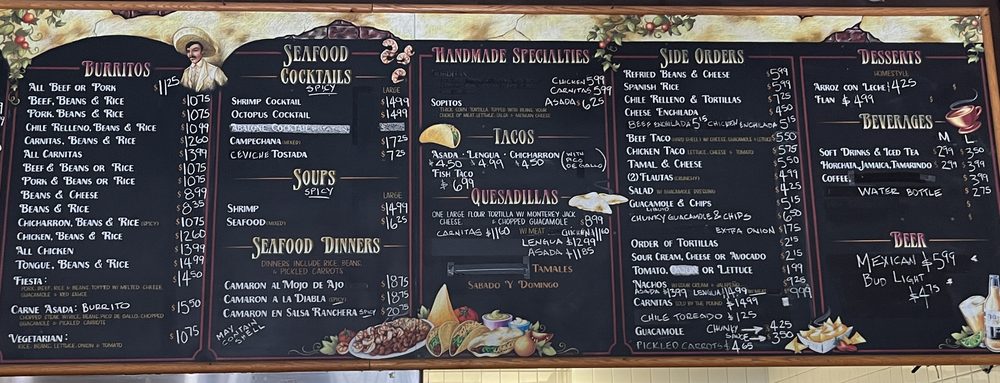 BURRITOS
ALL BEEF OR PORK $11.25
BEEF, BEANS & RICE $10.75
PORK, BEANS & RICE $10.75
CHILE RELLENO, BEANS & RICE $10.99
CARNITAS, BEANS & RICE $12.60
ALL CARNITAS $13.99
BEEF & BEANS OR RICE $10.75
PORK & BEANS OR RICE $10.75
BEANS & CHEESE $8.99
BEANS & RICE $8.35
CHICHARRON, BEANS & RICE (SPICY) $10.75
CHICKEN, BEANS & RICE $12.60
ALL CHICKEN $13.99
TONGUE, BEANS & RICE $14.99
FIESTA: $14.50
PORK, BEEF, RICE & BEANS TOPPED W/ MELTED CHEESE
GUACAMOLE & RED SAUCE
CARNE ASADA: BURRITO $15.50
CHOPPED STEAK W/RICE, BEANS, PICO DE GALLO, CHOPPED
GUACAMOLE & PICKLED CARROTS
VEGETARIAN: $10.75
RICE, BEANS, LETTUCE, ONION & TOMATO
SEAFOOD
COCKTAILS
SPICY
LARGE
SHRIMP COCKTAIL $14.99
OCTOPUS COCKTAIL $14.99
ABALONE COCKTAIL
CAMPECHANA (MIXED) $17.25
CEVICHE TOSTADA $7.25
SOUPS
SPICY
LARGE
SHRIMP $14.99
SEAFOOD (MIXED) $16.25
SEAFOOD DINNERS
DINNERS INCLUDE RICE, BEANS,
& PICKLED CARROTS
CAMARON AL MOJO DE AJO $18.75
CAMARON A LA DIABLA (SPICY) $18.75
CAMARON EN SALSA RANCHERA SPICY $20.75
MAY CONTAIN SHELL
HANDMADE SPECIALTIES
CHICKEN 5.99
CARNITAS 5.99
SOPITOS ASADA $6.25
THICK CORN TORTILLA TOPPED WITH BEANS, YOUR
CHOICE OF MEAT LETTUCE, SALSA & MEXICAN CHEESE
TACOS
ASADA · LENGUA · CHICHARRON (WITH PICO DE GALLO)
$4.50 $4.99 $4.50
FISH TACO
$6.99
QUESADILLAS
ONE LARGE FLOUR TORTILLA W/ MONTEREY JACK
CHEESE & CHOPPED GUACAMOLE $8.99
CARNITAS $11.60 W/ MEAT CHICKEN $11.60
LENGUA $12.99
ASADA $11.85
TAMALES
SABADO Y DOMINGO
SIDE ORDERS
REFRIED BEANS & CHEESE $5.99
SPANISH RICE $5.99
CHILE RELLENO & TORTILLAS $7.25
CHEESE ENCHILADA $4.50
BEEF ENCHILADA 5.15 CHICKEN ENCHILADA 5.15
BEEF TACO (HARD SHELL) W/ CHEESE, GUACAMOLE & LETTUCE $5.50
CHICKEN TACO LETTUCE, CHEESE & TOMATO $5.75
TAMAL & CHEESE $5.50
(2) FLAUTAS (CRUNCHY) $4.99
SALAD W/ GUACAMOLE DRESSING $4.25
GUACAMOLE & CHIPS $5.15
LIQUID
CHUNKY GUACAMOLE & CHIPS $6.50
EXTRA ONION $1.75
ORDER OF TORTILLAS $2.15
SOUR CREAM, CHEESE OR AVOCADO $2.15
TOMATO, ONION OR LETTUCE $1.99
NACHOS W/SOUR CREAM & JALAPEÑO
ASADA $13.99 LENGUA $14.99 W/ MEAT
CARNITAS SOLD BY THE POUND $14.99
CHILE TOREADO $1.25
GUACAMOLE CHUNKY $4.25
SAUCE $3.50
PICKLED CARROTS $4.65
DESSERTS
HOMESTYLE
ARROZ CON LECHE $4.25
FLAN $4.99
BEVERAGES
M L
SOFT DRINKS & ICED TEA $2.99 $3.50
HORCHATA, JAMAICA, TAMARINDO $2.99 $3.99
COFFEE $3.99
WATER BOTTLE $2.75
BEER
MEXICAN $5.99
BUD LIGHT
$4.75